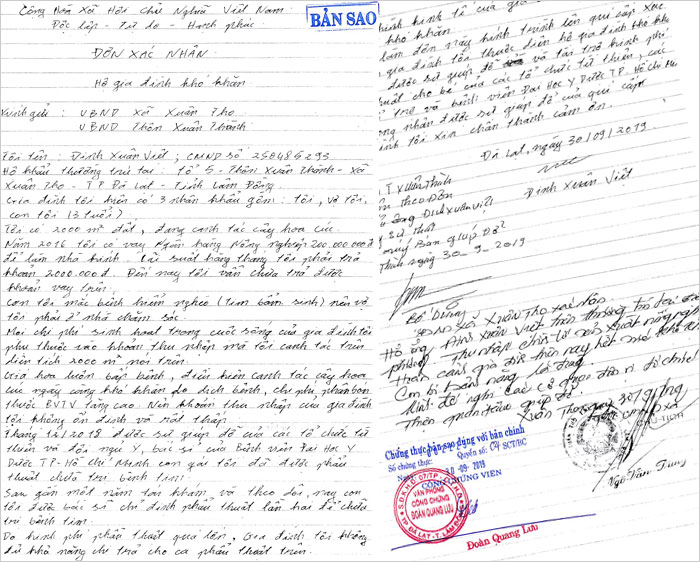 Cộng Hòa Xã Hội Chủ Nghĩa Việt Nam
Độc lập - Tự do - Hạnh phúc
BẢN SAO
ĐƠN XÁC NHẬN
Hộ gia đình khó khăn
Kính gửi : UBND Xã Xuân Thọ
UBND Thôn Xuân Thành
Tôi tên : Đinh Xuân Viết ; CMND số 250485293
Hộ khẩu thường trú tại : tổ 5 - Thôn Xuân Thành - Xã
Xuân Thọ - TP Đà Lạt - Tỉnh Lâm Đồng
Gia đình tôi hiện có 3 nhân khẩu gồm : tôi, vợ tôi,
con tôi (3 tuổi).
Tôi có 2000 m² đất, đang canh tác cây hoa cúc.
Năm 2016 tôi có vay Ngân hàng Nông nghiệp 200.000.000đ
để làm nhà kính. Lãi suất hàng tháng tôi phải trả
khoản 2000.000đ. Đến nay tôi vẫn chưa trả được
khoản vay trên.
Con tôi mắc bệnh hiểm nghèo (tim bẩm sinh) nên vợ
tôi phải ở nhà chăm sóc.
Mọi chi phí sinh hoạt trong cuộc sống của gia đình tôi
phụ thuộc vào khoản thu nhập mà tôi canh tác trên
diện tích 2000 m² nói trên.
Giá hoa luôn bấp bênh, điều kiện canh tác cây hoa
cúc ngày càng khó khăn do dịch bệnh, chi phí phân bón
thuốc BVTV tăng cao. Nên khoản thu nhập của gia đình
tôi không ổn định và rất thấp.
Tháng 12/2018 được sự giúp đỡ của các tổ chức từ
thiện và đội ngũ Y, bác sĩ của Bệnh viện Đại Học Y
Dược TP. Hồ Chí Minh con gái tôi đã được phẫu
thuật chữa trị bệnh tim.
Sau gần một năm tái khám và theo dõi, nay con
tôi được bác sĩ chỉ định phẫu thuật lần hai để chữa
trị bệnh tim.
Do kinh phí phẫu thuật quá lớn, Gia đình tôi không
đủ khả năng chi trả cho ca phẫu thuật trên.
kinh tế của gia
khó khăn
làm đơn này kính trình lên quí cấp xác
gia đình tôi thuộc diện hộ gia đình khó khăn
được sự giúp đỡ và tài trợ kinh phí
thuật cho bé của các tổ chức từ thiện, các
trợ và bệnh viện Đại Học Y Dược TP. Hồ Chí Minh
nhận được sự giúp đỡ của quí cấp
đình tôi xin chân thành cảm ơn.
Đà Lạt, ngày 30/09/2019
Đinh Xuân Viết
Xuân Thành
theo Đơn
ông Đinh Xuân Viết
sự thật
quý Ban giúp Đỡ
ngày 30-9-2019
xã Xuân Thọ xác nhận
Hộ ông Đinh Xuân Viết hiện thường trú tại địa
Thu nhập chính từ sản xuất nông nghiệp
Hoàn cảnh gia đình hiện nay hết sức khó khăn
Xuân Thọ, ngày 30/9/2019
Chứng thực bản sao đúng với bản chính
Số chứng thực: Quyển số: 04 SCT/BC
Ngày 30-09-2019
CÔNG CHỨNG VIÊN
VĂN PHÒNG
CÔNG CHỨNG
ĐOÀN QUANG LƯU
TP ĐÀ LẠT - T. LÂM ĐỒNG
CHỦ TỊCH
Ngô Văn Trung
Đoàn Quang Lưu